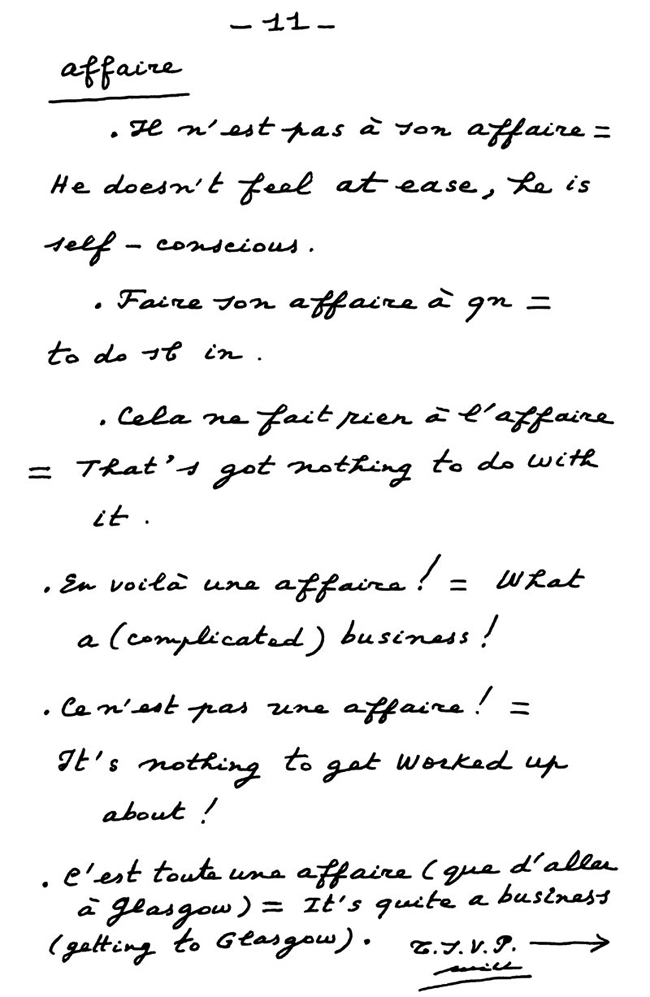 - 11 -
affaire
. Il n'est pas à son affaire =
He doesn't feel at ease, he is
self-conscious.
. Faire son affaire à qn =
to do sb in.
. Cela ne fait rien à l'affaire
= That's got nothing to do with
it.
. En voilà une affaire! = What
a (complicated) business!
. Ce n'est pas une affaire! =
It's nothing to get worked up
about!
. C'est toute une affaire (que d'aller
à Glasgow) = It's quite a business
(getting to Glasgow). T.S.V.P. →